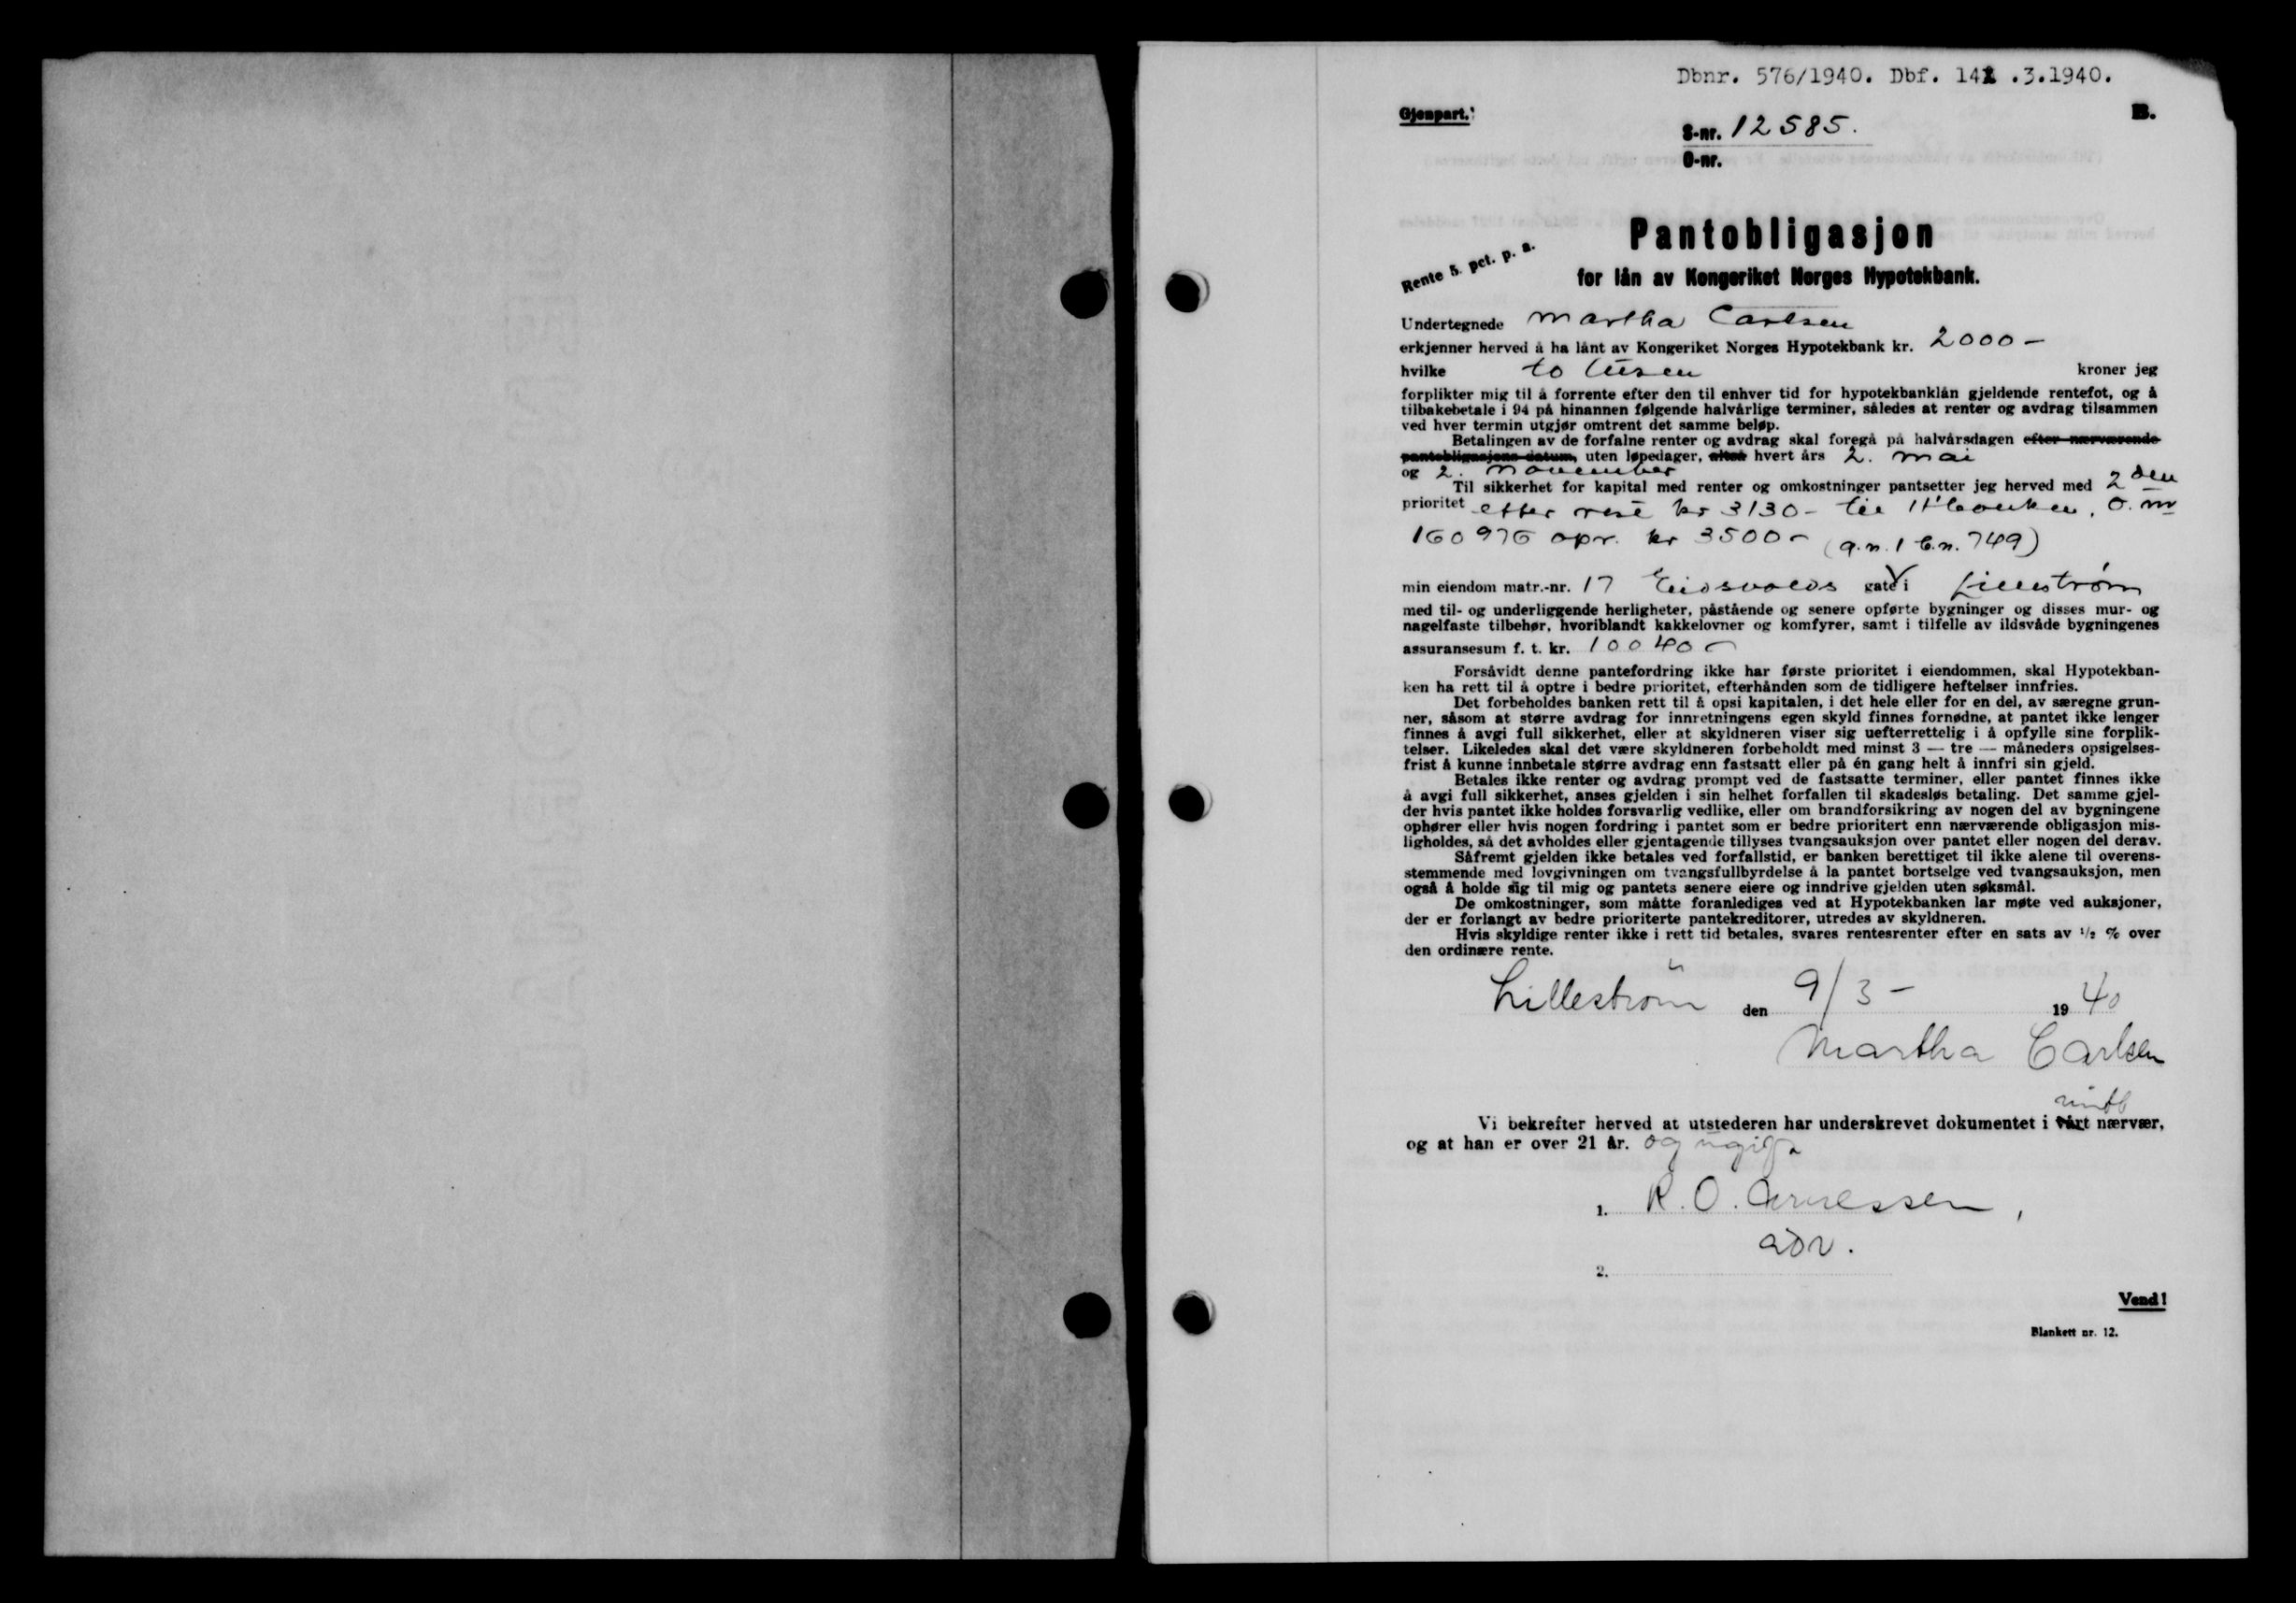 Dbnr. 576/1940. Dbf. 14 .3.1940.
Gjenpart.
B.
S-nr. 12585.
O-nr.
Pantobligasjon
Rente 5 pct. p. a.
for lån av Kongeriket Norges Hypotekbank.
Undertegnede Martha Carlsen
erkjenner herved å ha lånt av Kongeriket Norges Hypotekbank kr. 2000 –
hvilke to tusen kroner jeg
forplikter mig til å forrente efter den til enhver tid for hypotekbanklån gjeldende rentefot, og å
tilbakebetale i 94 på hinannen følgende halvårlige terminer, således at renter og avdrag tilsammen
ved hver termin utgjør omtrent det samme beløp.
Betalingen av de forfalne renter og avdrag skal foregå på halvårsdagen efter nærværende
pantobligasjons datum, uten løpedager, altså hvert års 2. mai
og 2. november
Til sikkerhet for kapital med renter og omkostninger pantsetter jeg herved med 2den
prioritet efter rest kr 3130 – til H'banken, O. nr
160976 opr. kr 3500 – (g.n. 1 b.n. 749)
min eiendom matr.-nr. 17 Eidsvolds gate i Lillestrøm
med til- og underliggende herligheter, påstående og senere opførte bygninger og disses mur- og
nagelfaste tilbehør, hvoriblandt kakkelovner og komfyrer, samt i tilfelle av ildsvåde bygningenes
assuransesum f. t. kr. 10040 –
Forsåvidt denne pantefordring ikke har første prioritet i eiendommen, skal Hypotekban-
ken ha rett til å optre i bedre prioritet, efterhånden som de tidligere heftelser innfries.
Det forbeholdes banken rett til å opsi kapitalen, i det hele eller for en del, av særegne grun-
ner, såsom at større avdrag for innretningens egen skyld finnes fornødne, at pantet ikke lenger
finnes å avgi full sikkerhet, eller at skyldneren viser sig uefterrettelig i å opfylle sine forplik-
telser. Likeledes skal det være skyldneren forbeholdt med minst 3 — tre — måneders opsigelses-
frist å kunne innbetale større avdrag enn fastsatt eller på én gang helt å innfri sin gjeld.
Betales ikke renter og avdrag prompt ved de fastsatte terminer, eller pantet finnes ikke
å avgi full sikkerhet, anses gjelden i sin helhet forfallen til skadesløs betaling. Det samme gjel-
der hvis pantet ikke holdes forsvarlig vedlike, eller om brandforsikring av nogen del av bygningene
ophører eller hvis nogen fordring i pantet som er bedre prioritert enn nærværende obligasjon mis-
ligholdes, så det avholdes eller gjentagende tillyses tvangsauksjon over pantet eller nogen del derav.
Såfremt gjelden ikke betales ved forfallstid, er banken berettiget til ikke alene til overens-
stemmende med lovgivningen om tvangsfullbyrdelse å la pantet bortselge ved tvangsauksjon, men
også å holde sig til mig og pantets senere eiere og inndrive gjelden uten søksmål.
De omkostninger, som måtte foranlediges ved at Hypotekbanken lar møte ved auksjoner,
der er forlangt av bedre prioriterte pantekreditorer, utredes av skyldneren.
Hvis skyldige renter ikke i rett tid betales, svares rentesrenter efter en sats av ½ % over
den ordinære rente.
Lillestrøm den 9/3 – 1940
Martha Carlsen
mitt
Vi bekrefter herved at utstederen har underskrevet dokumentet i vårt nærvær,
og at han er over 21 år. og ugift
1. R. O. Arnessen,
adv.
2.
Vend!
Blankett nr. 12.